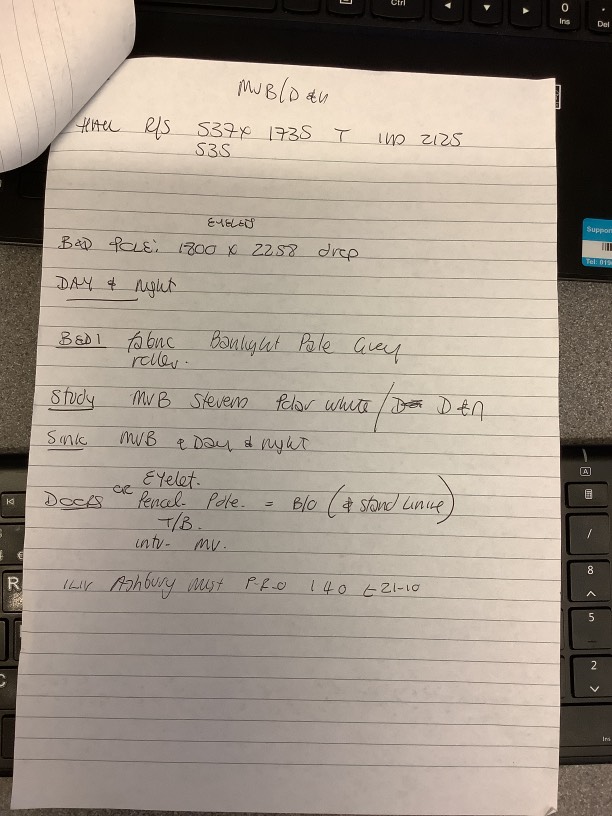 MVB/D & N
HALL R/S 537 x 1735 T 2125
535
EYELETS
BED POLE: 1800 x 2258 drop
DAY & night
BED 1 fabric Banlight Pale Grey
roller.
Study MVB Stevens Polar white / D & N
Sink MVB & Day & night
or Eyelet.
DOORS Pencil. Pole. = B/O (& stand Lining)
T/B.
intu- MV.
Ashbury Mist P-R-O 140 £21-10
Ctrl
0
Ins
Del
Support
Tel:
A
/
8
5
2
Ins
R